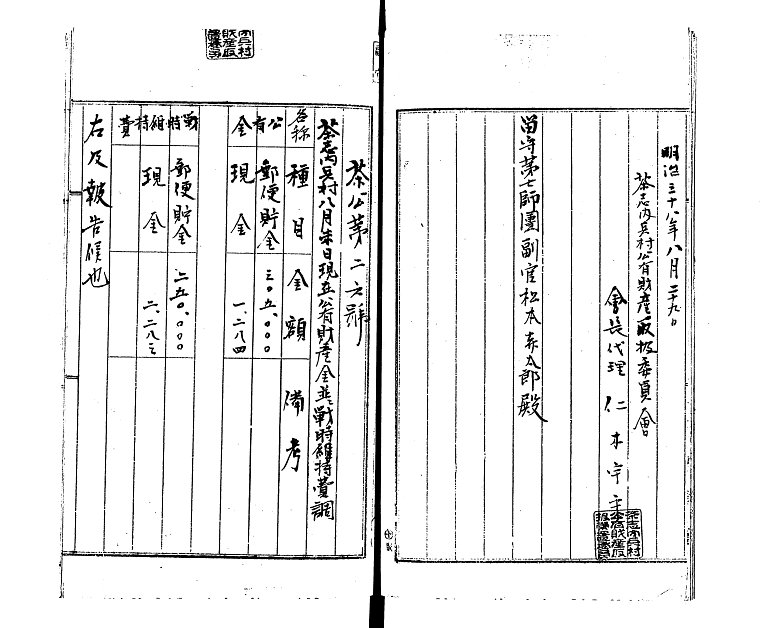 明治三十八年八月二十九日
茶志内兵村公有財産取扱委員會
會長代理 仁木
留守第七師團副官松本 郎殿
茶公第二六號
茶志内兵村八月末日現在公有財産金並戰時維持費調
名称 種目 金額 備考
公有金 郵便貯金 三〇五、〇〇〇
現金 一、二八四
戰時維持費 郵便貯金 二五〇、〇〇〇
現金 二、二八三
右及報告候也